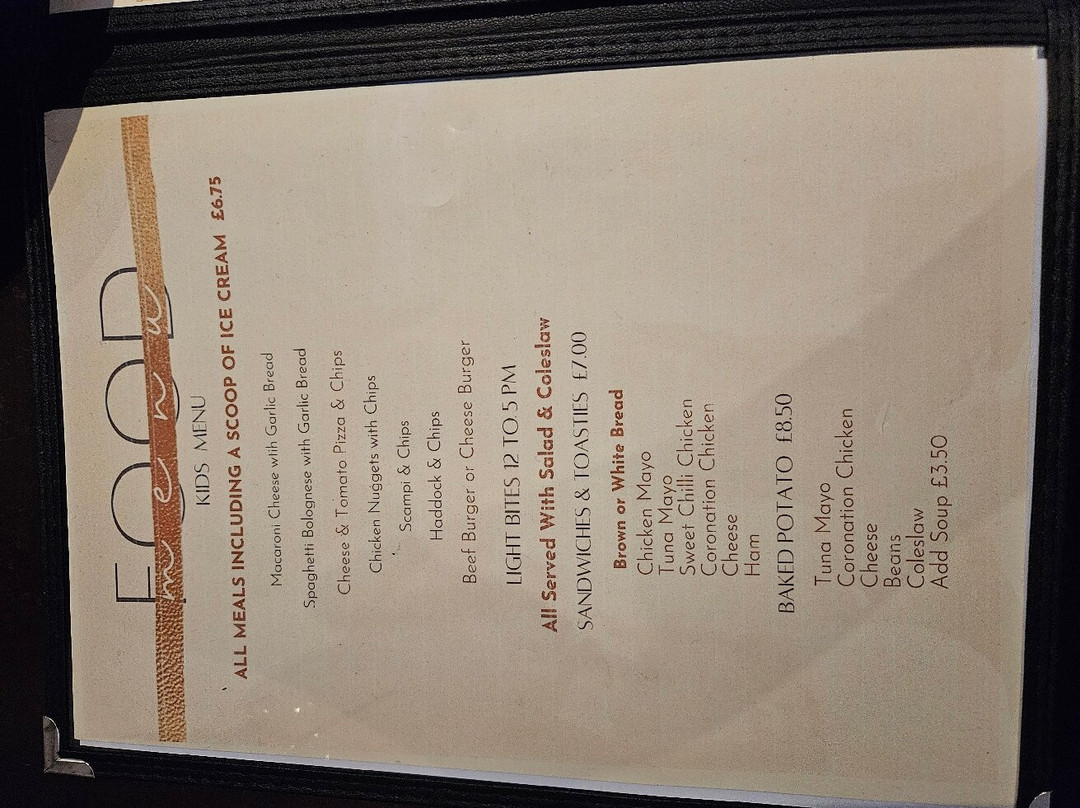 FOOD
menu
KIDS MENU
ALL MEALS INCLUDING A SCOOP OF ICE CREAM £6.75
Macaroni Cheese wtih Garlic Bread
Spaghetti Bolognese with Garlic Bread
Cheese & Tomato Pizza & Chips
Chicken Nuggets with Chips
Scampi & Chips
Haddock & Chips
Beef Burger or Cheese Burger
LIGHT BITES 12 TO 5 PM
All Served With Salad & Coleslaw
SANDWICHES & TOASTIES £7.00
Brown or White Bread
Chicken Mayo
Tuna Mayo
Sweet Chilli Chicken
Coronation Chicken
Cheese
Ham
BAKED POTATO £8.50
Tuna Mayo
Coronation Chicken
Cheese
Beans
Coleslaw
Add Soup £3.50